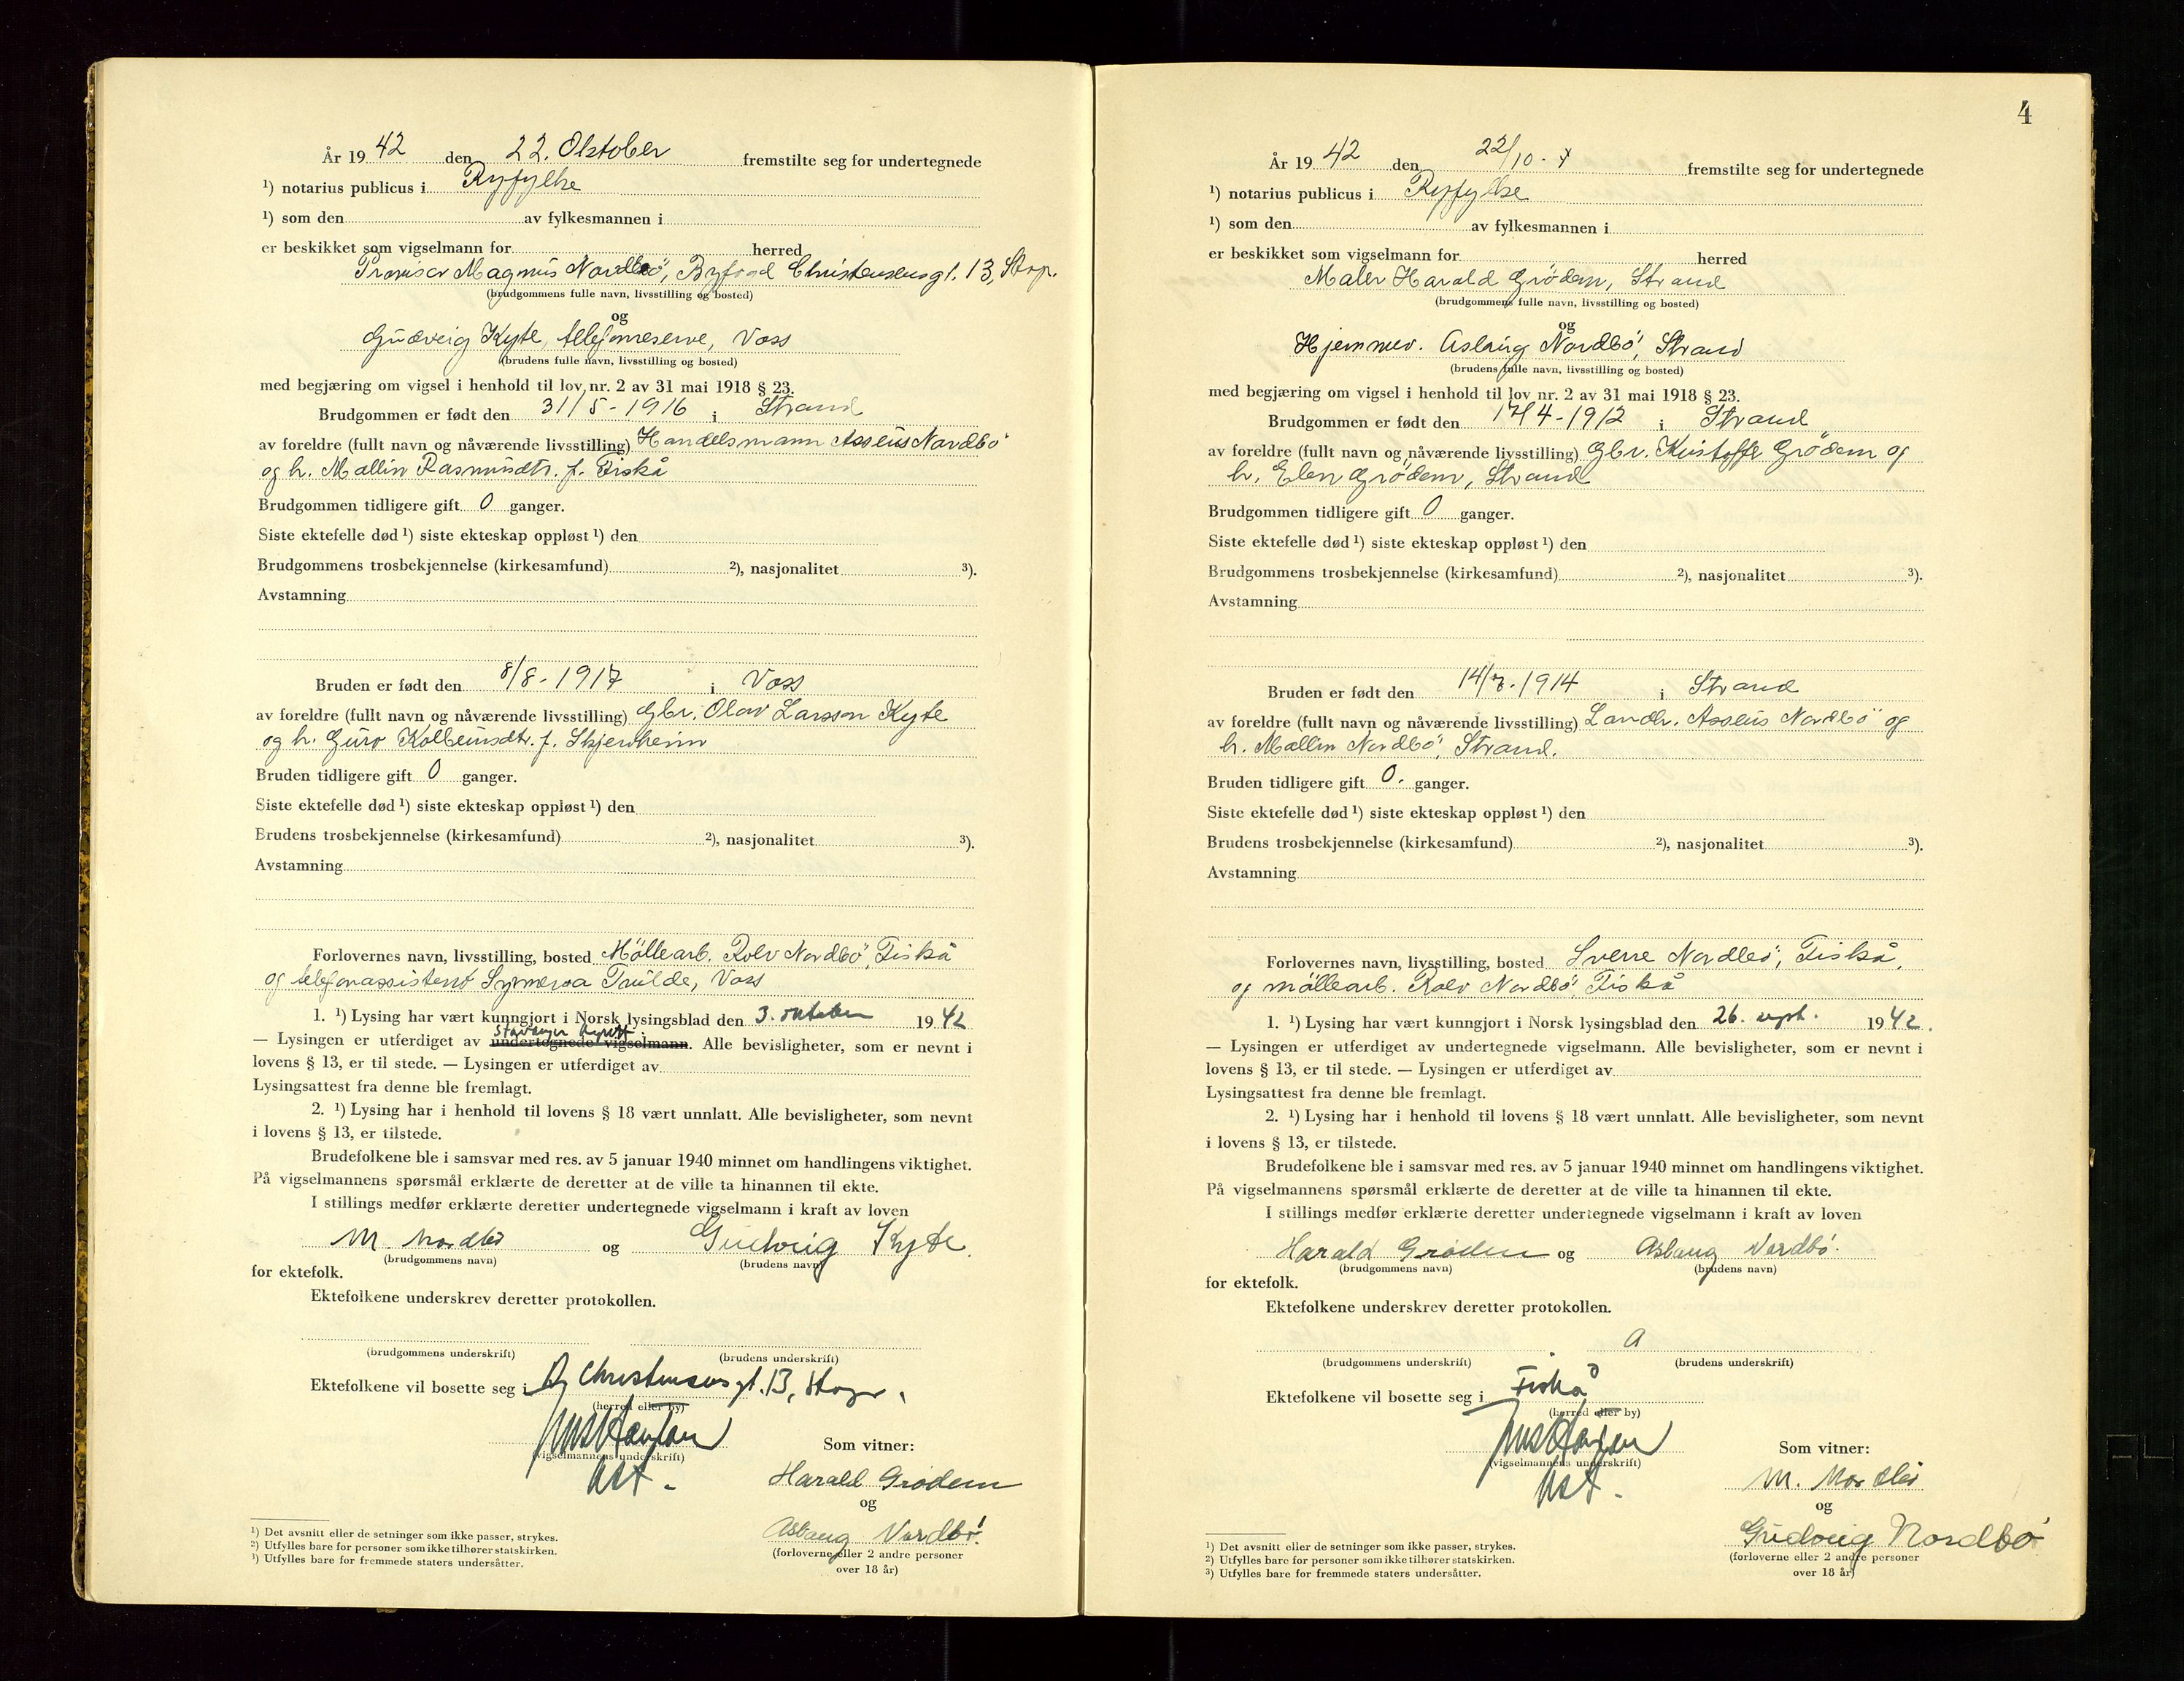 År 19 42 den 22. Oktober fremstilte seg for undertegnede
¹) notarius publicus i Ryfylke
¹) som den av fylkesmannen i
er beskikket som vigselmann for herred
Provisor Magnus Nordbö, Byfogd Christensensgt. 13, Stvgr.
(brudgommens fulle navn, livsstilling og bosted)
og
Gudveig Kyte, telefonreserve, Voss
(brudens fulle navn, livsstilling og bosted)
med begjæring om vigsel i henhold til lov nr. 2 av 31 mai 1918 § 23.
Brudgommen er født den 31/5-1916 i Strand
av foreldre (fullt navn og nåværende livsstilling) Handelsmann Asseus Nordbö
og h. Mallin Rasmusdtr. f. Fiskå
Brudgommen tidligere gift 0 ganger.
Siste ektefelle død ¹) siste ekteskap oppløst ¹) den
Brudgommens trosbekjennelse (kirkesamfund) ²), nasjonalitet ³).
Avstamning
Bruden er født den 8/8-1917 i Voss
av foreldre (fullt navn og nåværende livsstilling) Gbr. Olav Larsson Kyte
og h. Guro Kolbeinsdtr. f. Skjerheim
Bruden tidligere gift 0 ganger.
Siste ektefelle død ¹) siste ekteskap oppløst ¹) den
Brudens trosbekjennelse (kirkesamfund) ²), nasjonalitet ³).
Avstamning
Forlovernes navn, livsstilling, bosted Möllearb. Rolv Nordbö, Fiskå
og telefonassistent Synneva Tvilde, Voss
1. ¹) Lysing har vært kunngjort i Norsk lysingsblad den 3. oktober 1942
Stavanger byrett
— Lysingen er utferdiget av undertegnede vigselmann. Alle bevisligheter, som er nevnt i
lovens § 13, er til stede. — Lysingen er utferdiget av
Lysingsattest fra denne ble fremlagt.
2. ¹) Lysing har i henhold til lovens § 18 vært unnlatt. Alle bevisligheter, som nevnt
i lovens § 13, er tilstede.
Brudefolkene ble i samsvar med res. av 5 januar 1940 minnet om handlingens viktighet.
På vigselmannens spørsmål erklærte de deretter at de ville ta hinannen til ekte.
I stillings medfør erklærte deretter undertegnede vigselmann i kraft av loven
M. Nordbö og Gudveig Kyte.
(brudgommens navn) (brudens navn)
for ektefolk.
Ektefolkene underskrev deretter protokollen.
(brudgommens underskrift) (brudens underskrift)
Ektefolkene vil bosette seg i By Christensensgt. 13, Stvgr.
(herred eller by)
(vigselmannens underskrift)
Som vitner:
Harald Grödem
og
Aslaug Nordbö.
(forloverne eller 2 andre personer
over 18 år)
¹) Det avsnitt eller de setninger som ikke passer, strykes.
²) Utfylles bare for personer som ikke tilhører statskirken.
³) Utfylles bare for fremmede staters undersåtter.
4
År 19 42 den 22/10. fremstilte seg for undertegnede
¹) notarius publicus i Ryfylke
¹) som den av fylkesmannen i
er beskikket som vigselmann for herred
Maler Harald Grödem, Strand
(brudgommens fulle navn, livsstilling og bosted)
og
Hjemmev. Aslaug Nordbö, Strand
(brudens fulle navn, livsstilling og bosted)
med begjæring om vigsel i henhold til lov nr. 2 av 31 mai 1918 § 23.
Brudgommen er født den 17/4-1912 i Strand
av foreldre (fullt navn og nåværende livsstilling) Gbr. Kristoffer Grödem og
h. Elen Grödem, Strand
Brudgommen tidligere gift 0 ganger.
Siste ektefelle død ¹) siste ekteskap oppløst ¹) den
Brudgommens trosbekjennelse (kirkesamfund) ²), nasjonalitet ³).
Avstamning
Bruden er født den 14/7.1914 i Strand
av foreldre (fullt navn og nåværende livsstilling) Landh. Asseus Nordbö og
h. Mallin Nordbö, Strand.
Bruden tidligere gift 0. ganger.
Siste ektefelle død ¹) siste ekteskap oppløst ¹) den
Brudens trosbekjennelse (kirkesamfund) ²), nasjonalitet ³).
Avstamning
Forlovernes navn, livsstilling, bosted Sverre Nordbö, Fiskå,
og möllearb. Rolv Nordbö, Fiskå
1. ¹) Lysing har vært kunngjort i Norsk lysingsblad den 26. sept. 1942.
— Lysingen er utferdiget av undertegnede vigselmann. Alle bevisligheter, som er nevnt i
lovens § 13, er til stede. — Lysingen er utferdiget av
Lysingsattest fra denne ble fremlagt.
2. ¹) Lysing har i henhold til lovens § 18 vært unnlatt. Alle bevisligheter, som nevnt
i lovens § 13, er tilstede.
Brudefolkene ble i samsvar med res. av 5 januar 1940 minnet om handlingens viktighet.
På vigselmannens spørsmål erklærte de deretter at de ville ta hinannen til ekte.
I stillings medfør erklærte deretter undertegnede vigselmann i kraft av loven
Harald Grödem og Aslaug Nordbö.
(brudgommens navn) (brudens navn)
for ektefolk.
Ektefolkene underskrev deretter protokollen.
A
(brudgommens underskrift) (brudens underskrift)
Ektefolkene vil bosette seg i Fiskå
(herred eller by)
(vigselmannens underskrift)
Som vitner:
M. Nordbö
og
Gudveig Nordbö
(forloverne eller 2 andre personer
over 18 år)
¹) Det avsnitt eller de setninger som ikke passer, strykes.
²) Utfylles bare for personer som ikke tilhører statskirken.
³) Utfylles bare for fremmede staters undersåtter.